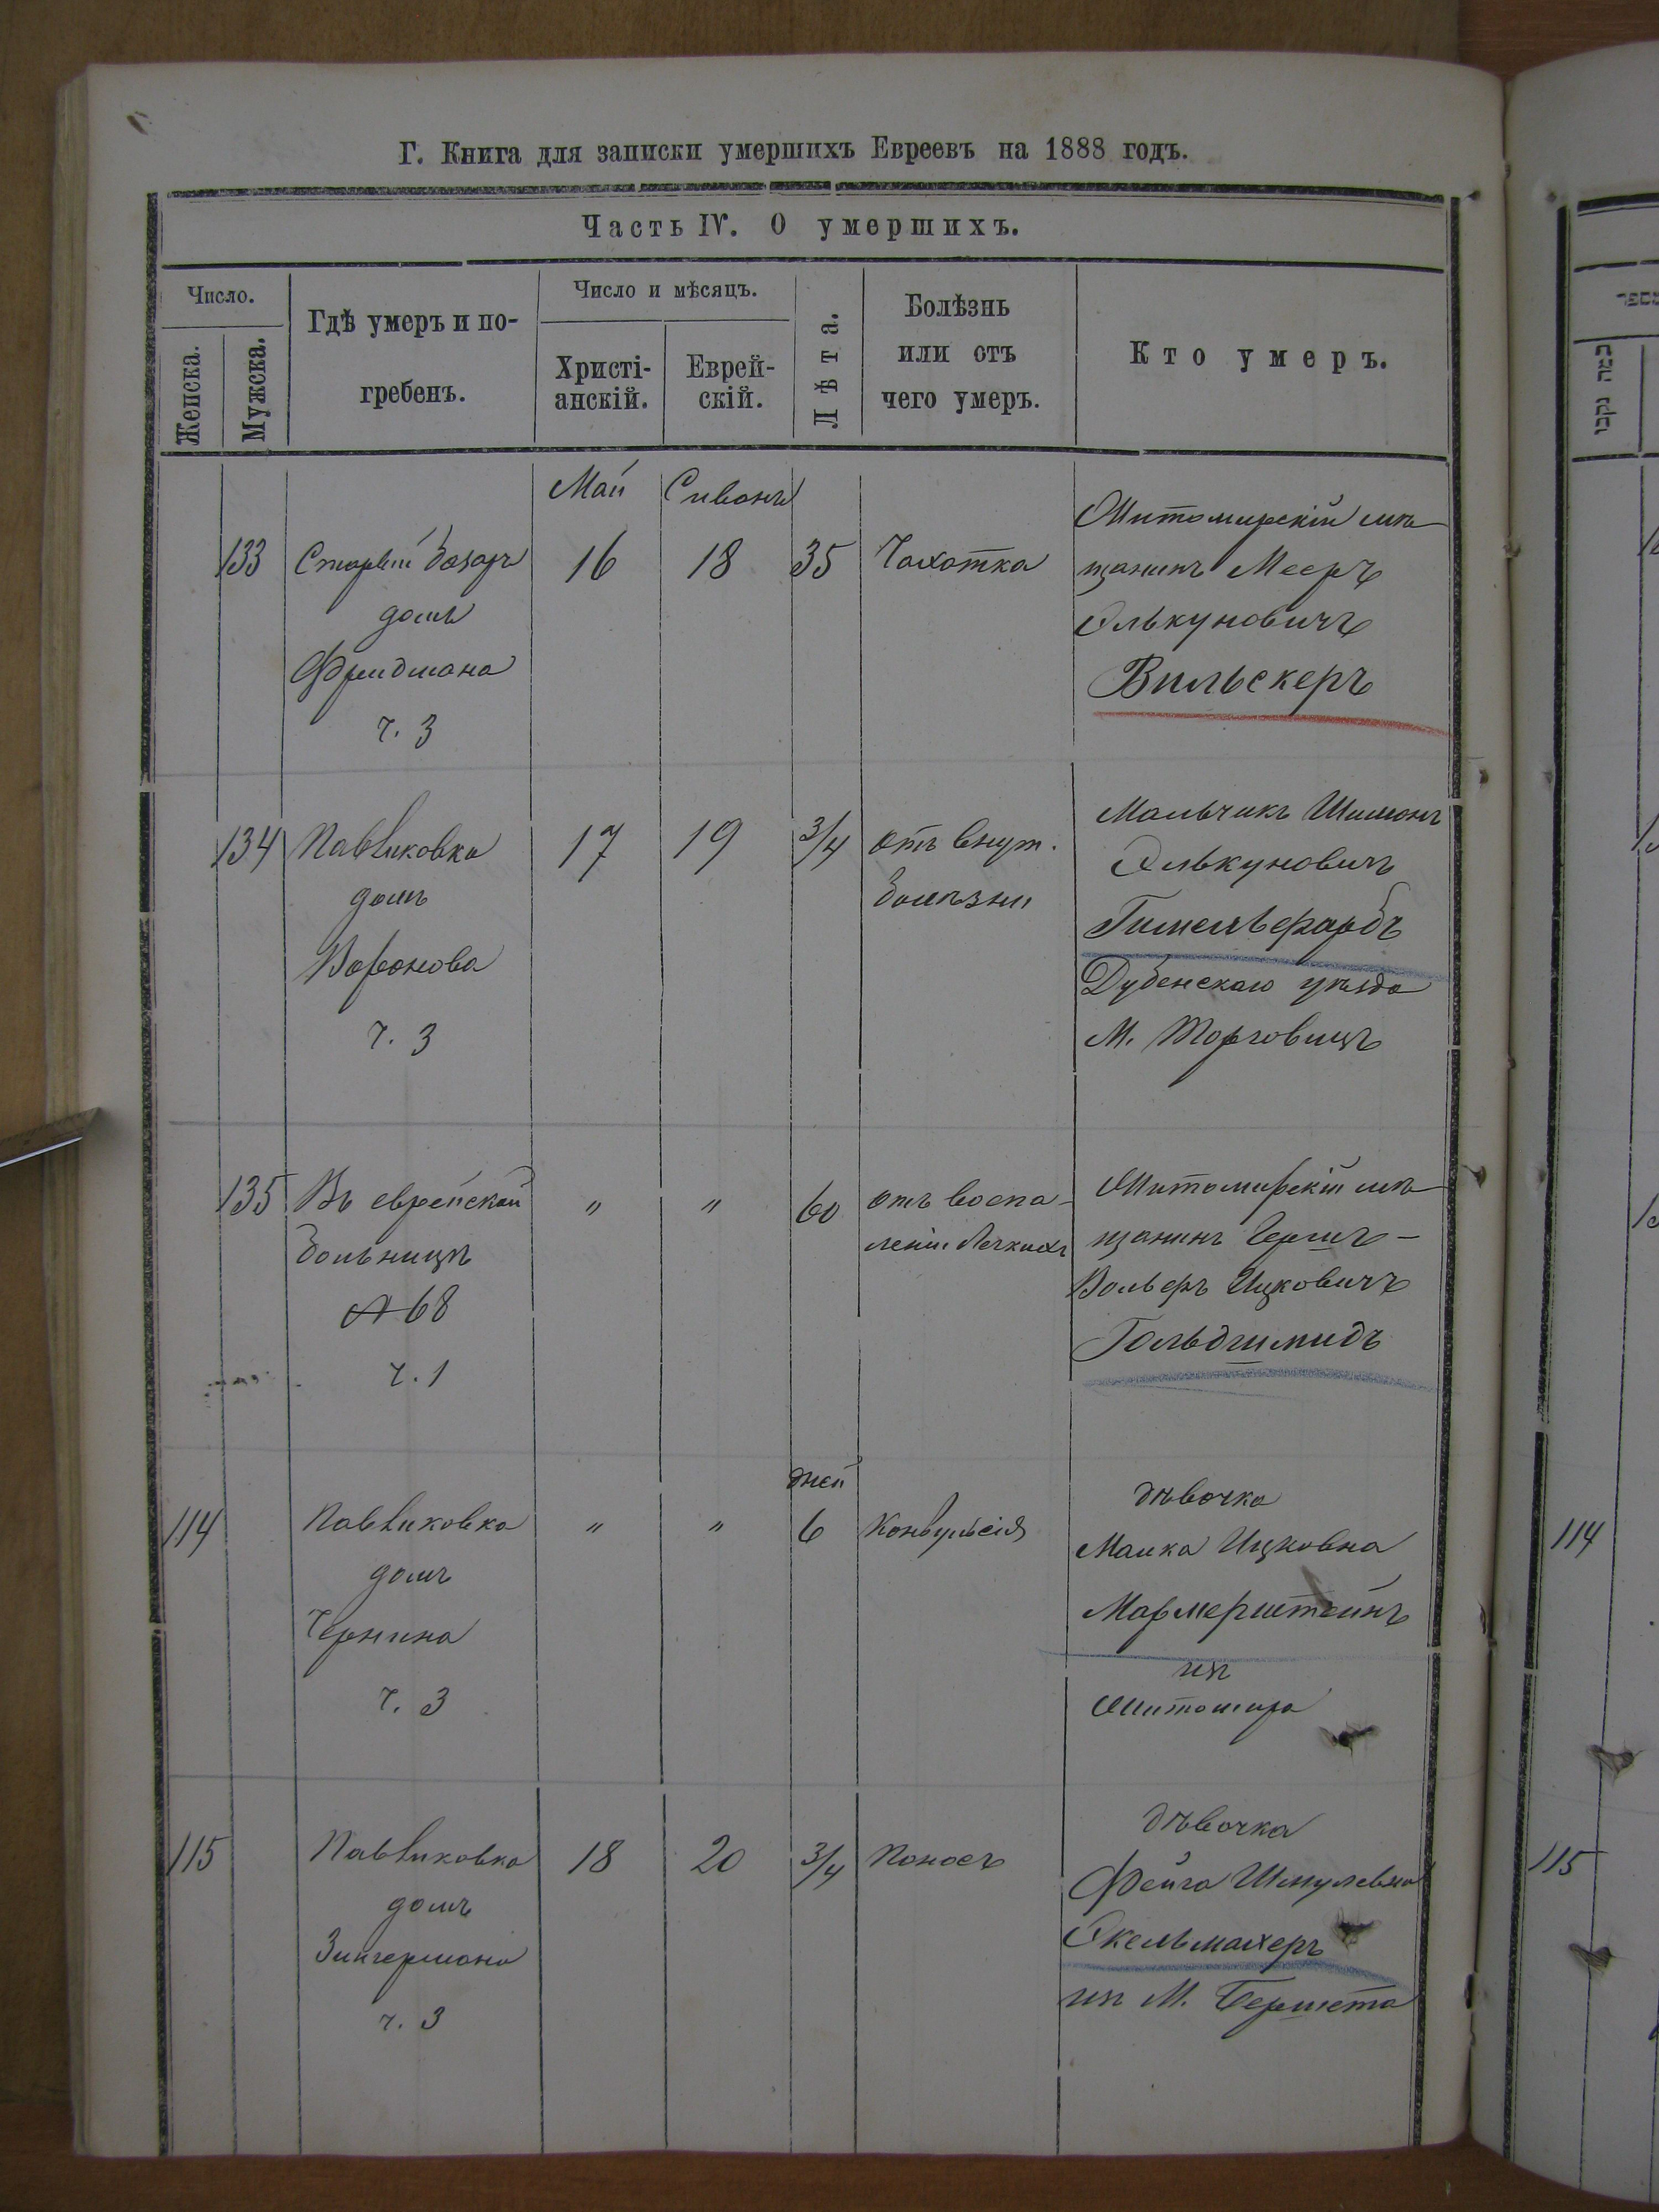 Г. Книга для записки умершихъ Евреевъ на 1888 годъ.
Часть IV. О умершихъ.
Число.
Женска.
Мужска.
Гдѣ умеръ и по-
гребенъ.
Число и мѣсяцъ.
Христі-
анскій.
Еврей-
скій.
Лѣта.
Болѣзнь
или отъ
чего умеръ.
Кто умеръ.
Май
Сиванъ
133
Старый базаръ
домъ
Фридмана
ч. 3
16
18
35
Чахотка
Житомирскій мѣ
щанинъ Мееръ
Элькуновичъ
Вильскеръ
134
Павликовка
домъ
Воронова
ч. 3
17
19
3/4
отъ внут.
болѣзни
Мальчикъ Шимонъ
Элькуновичъ
Гимельфарбъ
Дубенскаго уѣзда
М. Торговицъ
135
Въ еврейской
больницѣ
№ 68
ч. 1
"
"
60
отъ воспа-
леніи Легкихъ
Житомирскій мѣ
щанинъ Гершъ-
Вольфъ Ицковичъ
Гольдшмидъ
114
Павликовка
домъ
Чернина
ч. 3
"
"
дней
6
Конвульсія
дѣвочка
Малка Ицковна
Мармерштейнъ
изъ
Житомира
115
Павликовка
домъ
Зингермана
ч. 3
18
20
3/4
Поносъ
дѣвочка
Фейга Шмулевна
Экельмахеръ
изъ М.
114
115